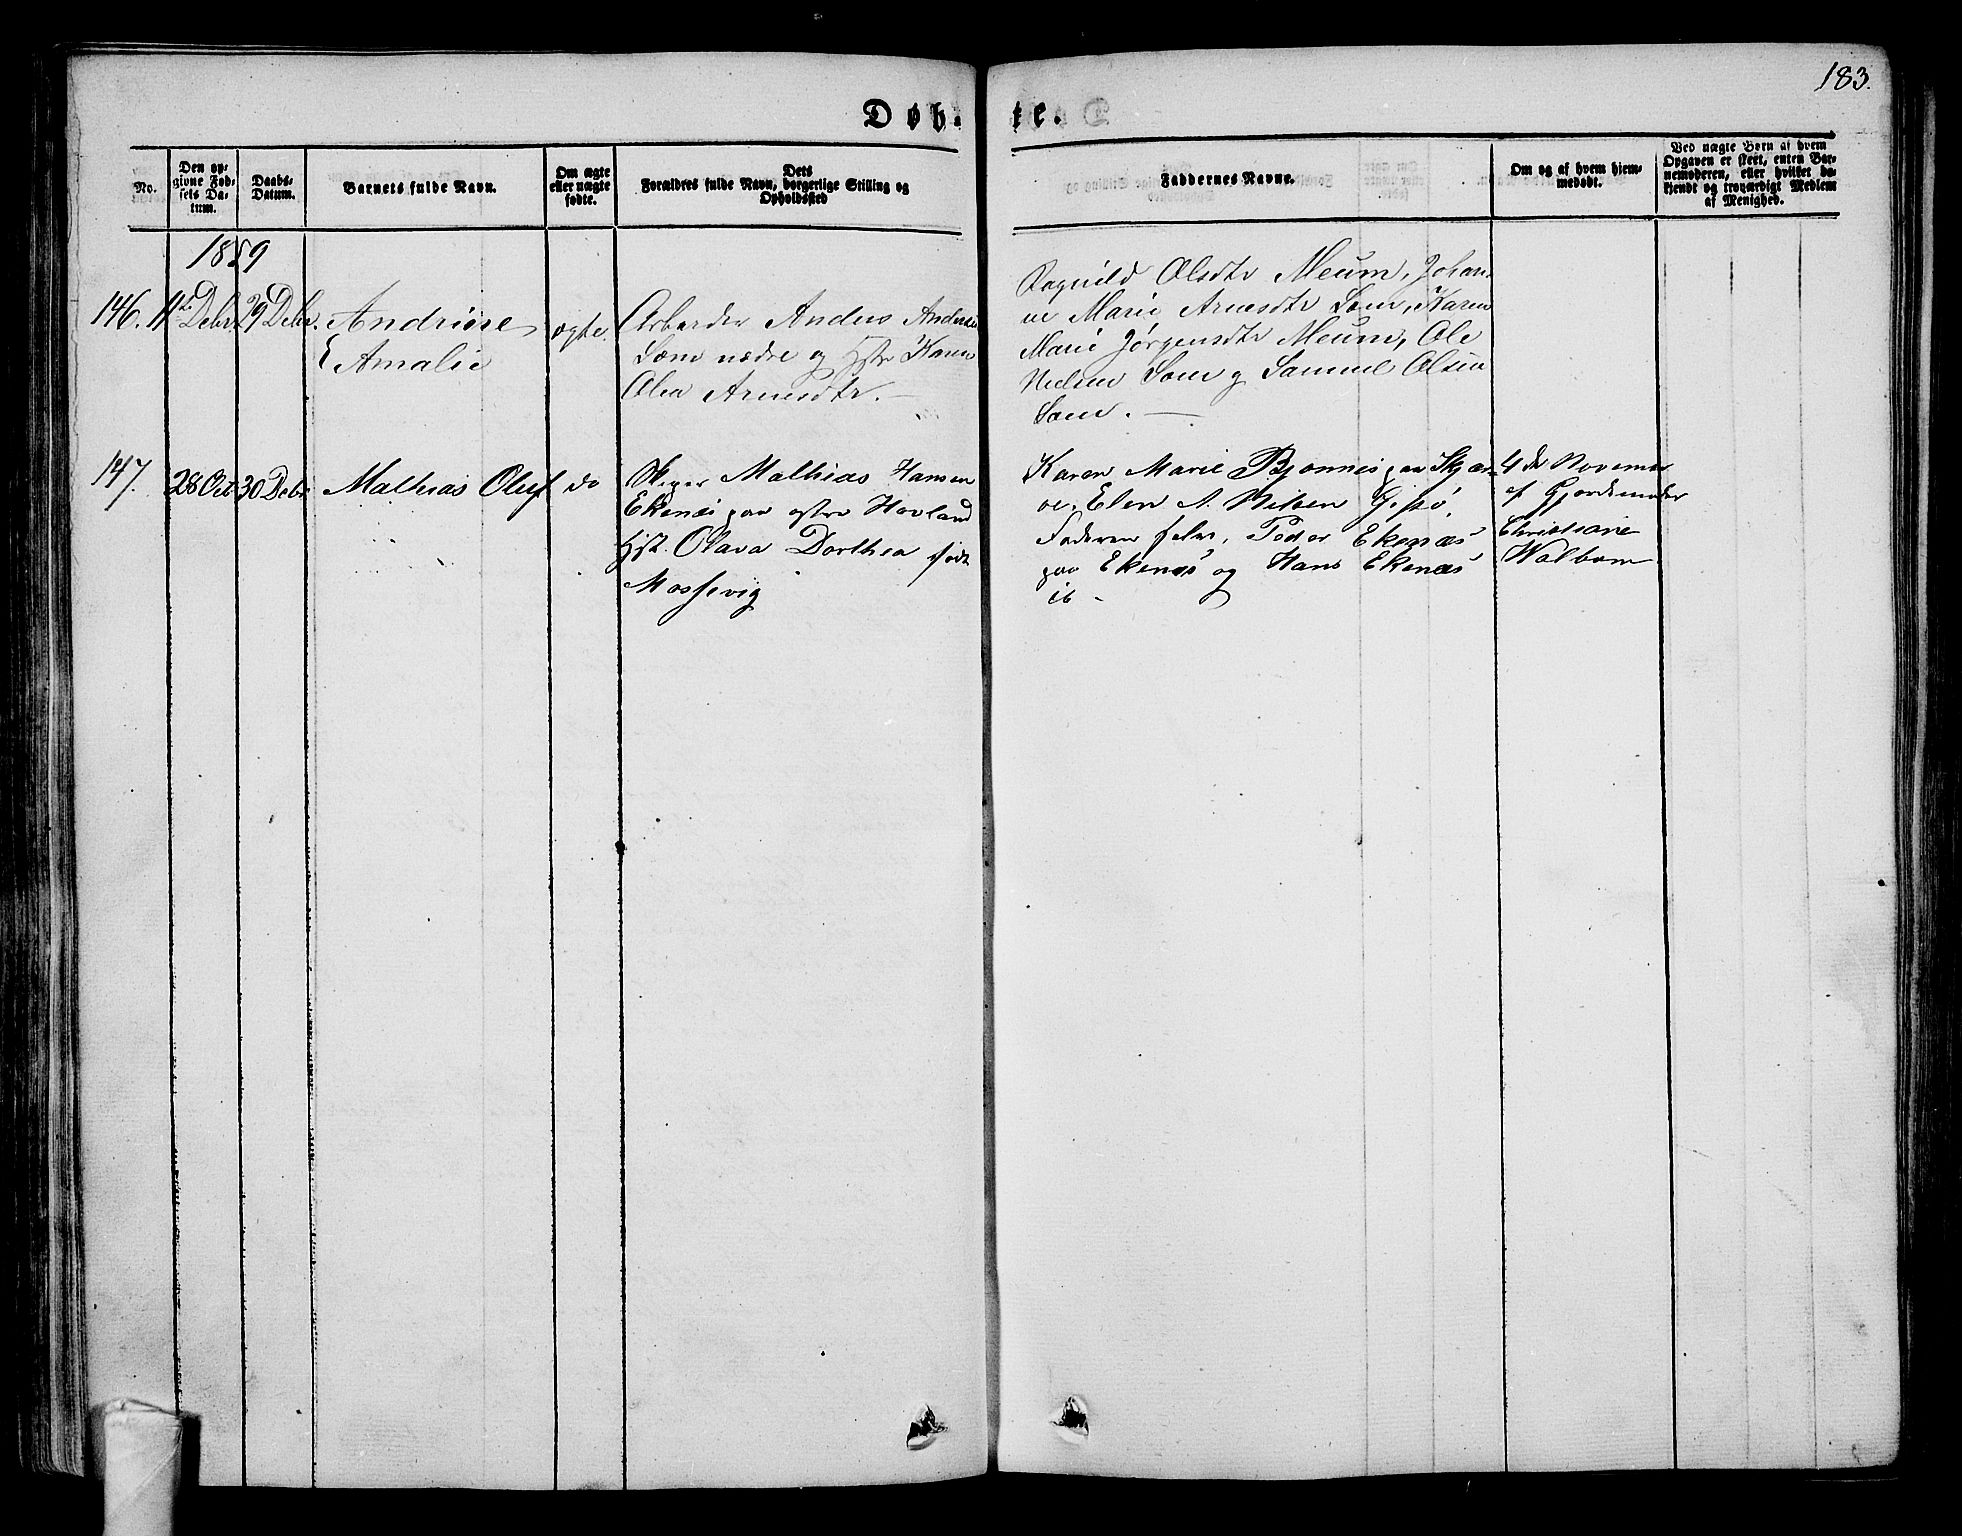 183.
Døb- te.
No.
Den op-
givne Fød-
sels Da-
tum.
Daabs-
Datum.
Barnets fulde Navn.
Om ægte
eller uægte
fødte.
Dets
Forældres fulde Navn, borgerlige Stilling og
Opholdssted
Faddernes Navne.
Om og af hvem hjem-
medøbt.
Ved uægte Børn af hvem
Opgaven er skeet, enten Bar-
nemoderen, eller hvilket be-
kjendt og troværdigt Medlem
af Menighed.
1859
146. 11te Debr. 29 Debr. Andrine
Amalie
ægte.
Arbeider Anders Andersen
Som nedre og Hstr Karen
Olea Arnesdtr. —
Ragnild Olsdtr Meum, Johan-
ne Marie Arnesdtr Som, Karen
Marie Jørgensdtr Meum, Ole
Nielsen Som og Samuel Olsen
Som. —
147. 28 Oct 30 Debr Mathias Oluf do
Mathias Hansen
Ekenæs paa østre Havland
Hst. Olava Dorthea født
Mossevig
Karen Marie Bjonnes paa Skjær-
oe, Elen A. Nilsen Gjesø,
Faderen selv, Peder Ekenæs
paa Ekenæs og Hans Ekenæs
ib —
4de November
af Gjordemoder
Christiane
Walbom